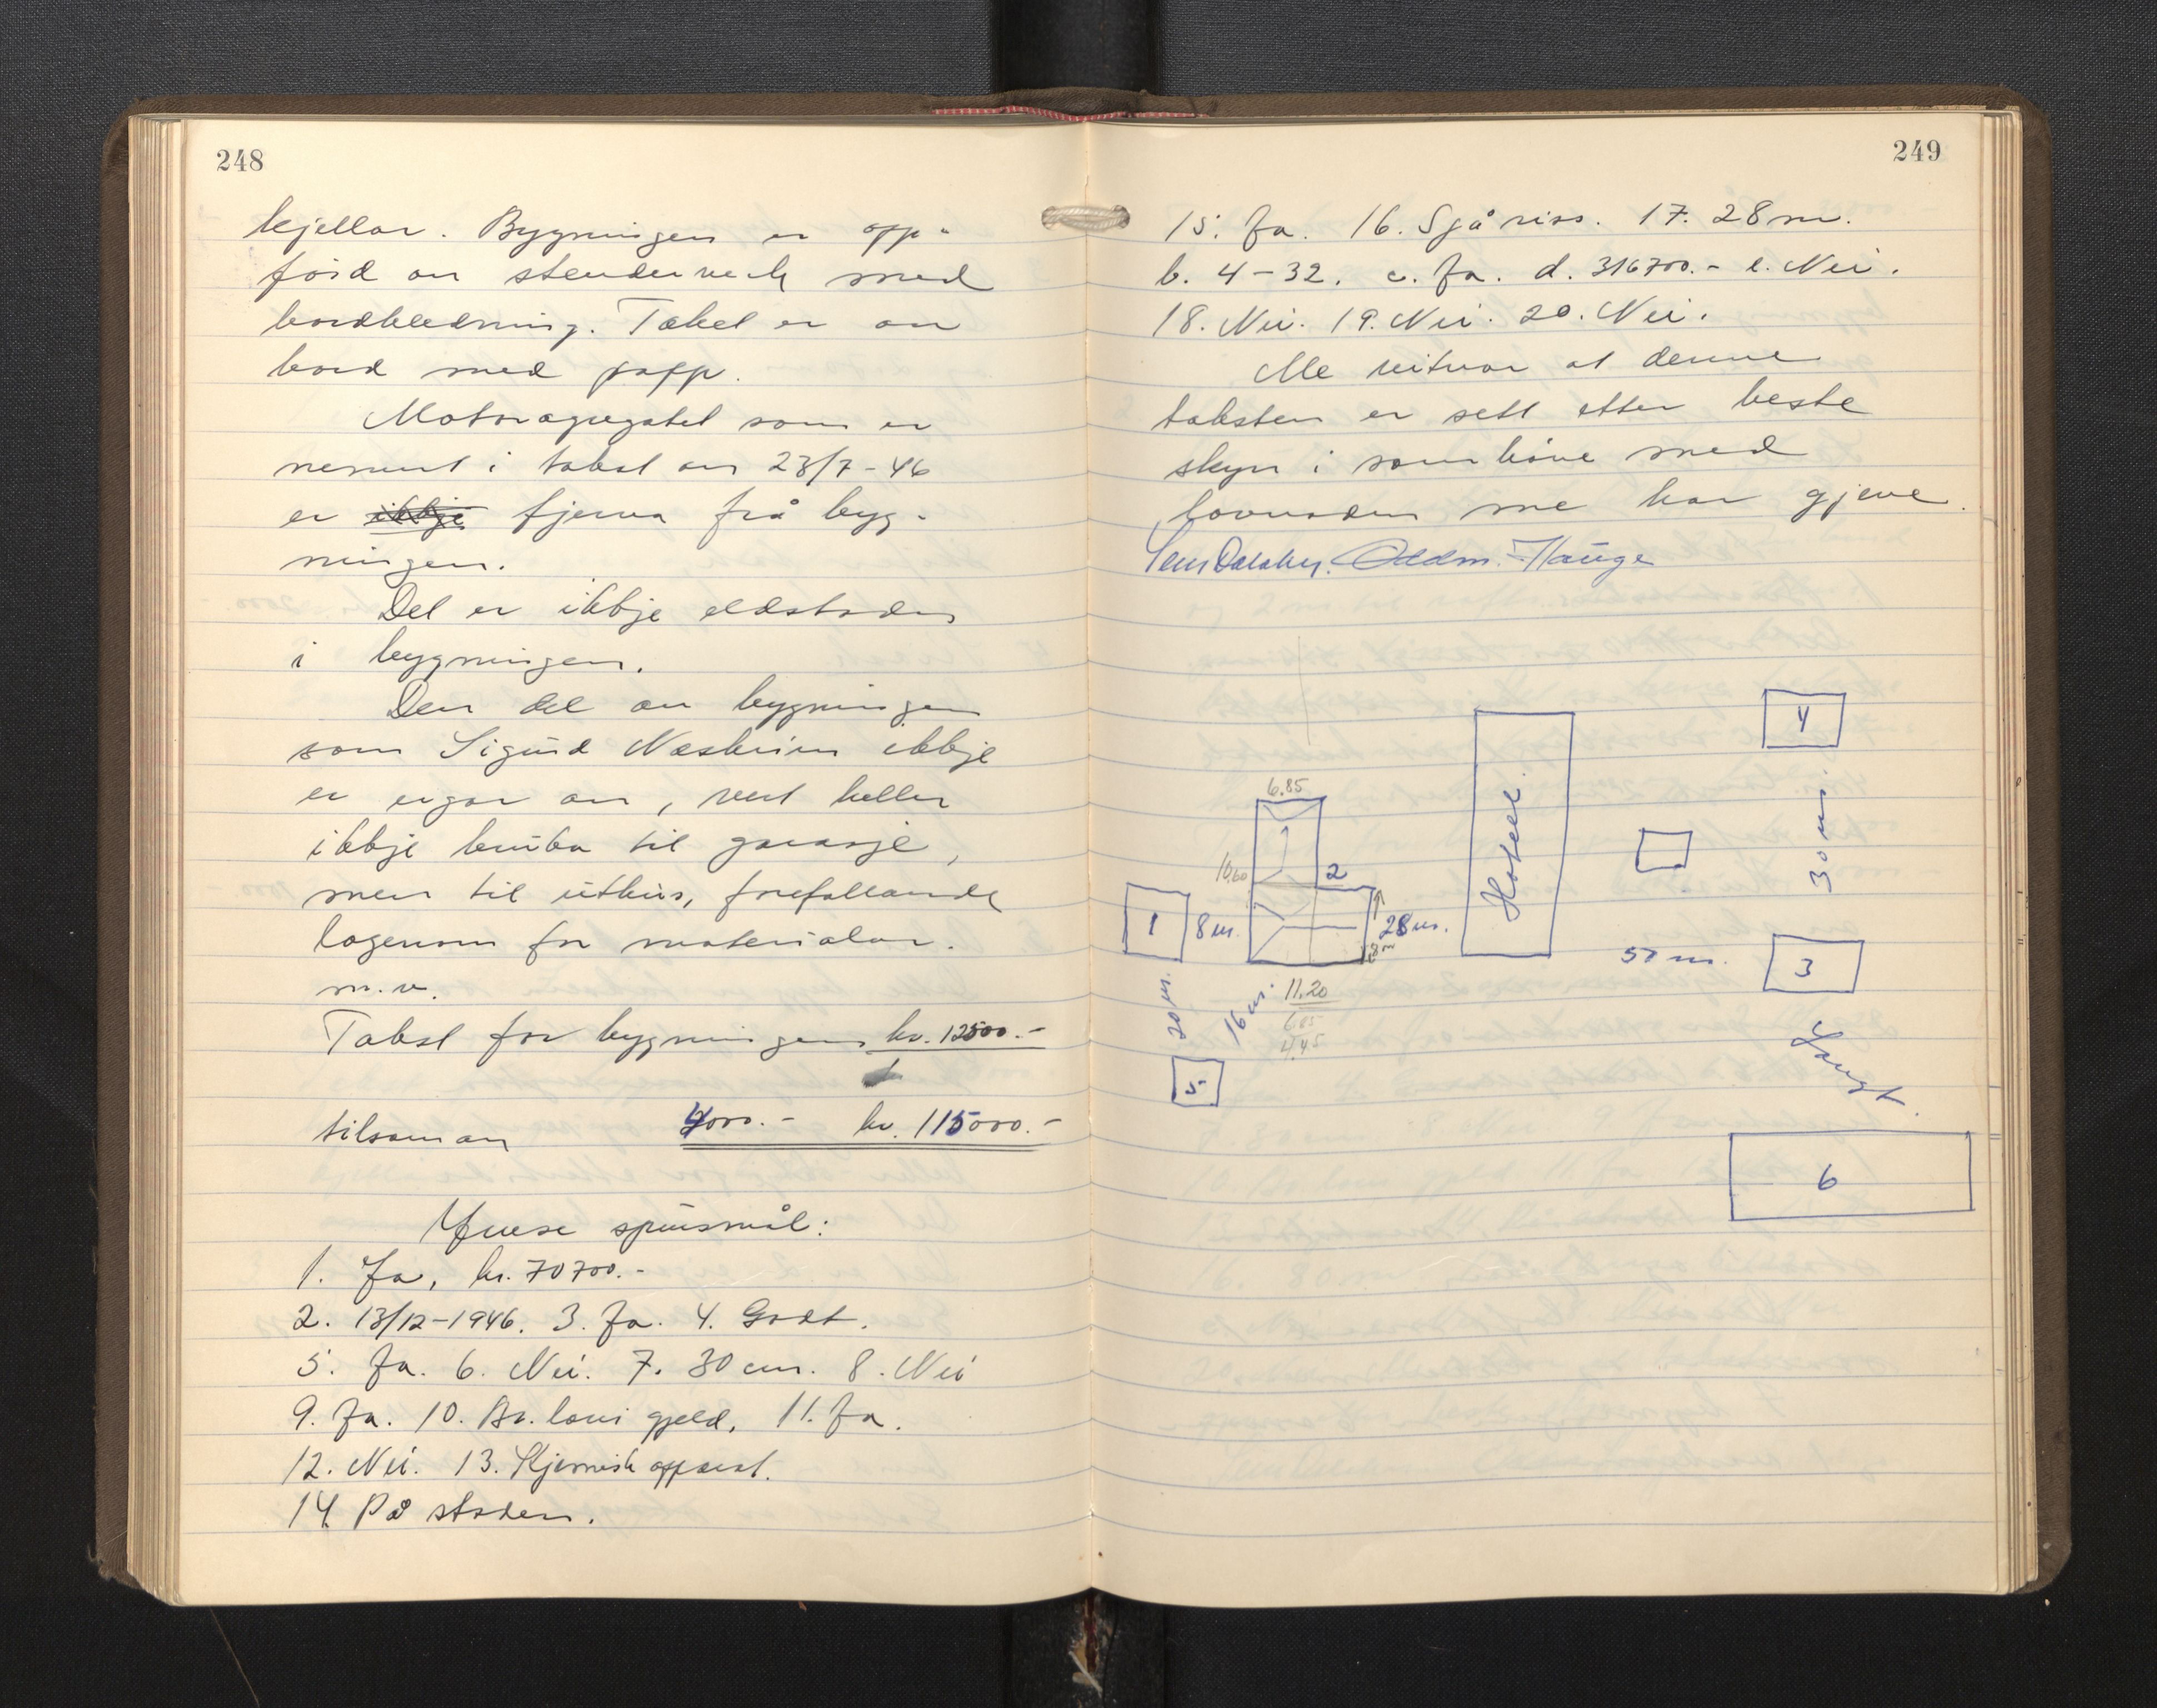 248
kjellar. Bygningen er opp-
förd av stenderverk med
bordkledning. Taket er av
bord med papp.
Motoragregatet som er
nemnt i takst av 23/7-46
er ikkje fjerna frå byg-
ningen.
Det er ikkje eldstader
i bygningen.
Den del av bygningen
som Sigurd Næsheim ikkje
er eigar av, vert heller
ikkje bruka til garasje,
men til uthus, forefallande
lagerrom for materialar.
m.v.
Takst for bygningen kr. 12500.-
tilsaman 4000.- kr. 115000.-
Ymse spursmål:
1. Ja, kr. 70700.-
2. 13/12-1946. 3. Ja. 4. Godt.
5. Ja. 6. Nei. 7. 30 cm. 8. Nei
9. Ja. 10. Br. lovi gjeld. 11. Ja.
12. Nei. 13. Kjemisk apparat.
14 På staden.
249
15. Ja. 16. Sjå riss. 17. 28 m.
b. 4-32. c. Ja. d. 316700.- e. Nei.
18. Nei. 19. Nei. 20. Nei.
Me vitnar at denne
taksten er sett etter beste
skyn i samhöve med
lovnaden me har gjeve.
Oddm. Hauge
4
6.85
Hotell.
30 m.
10.60
2
1
8 m.
28 m.
8 m
50 m.
3
20 m.
16 m.
11.20
6.85
4.45
Langt
5
6